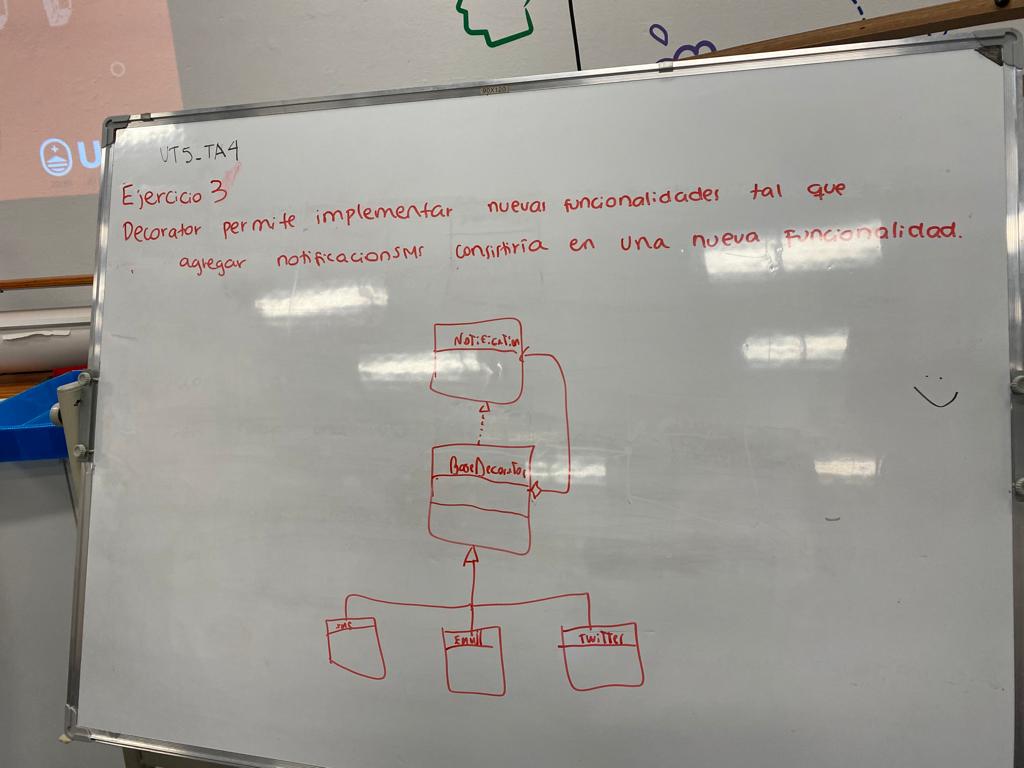 90X120
U
UT5_TA4
Ejercicio 3
Decorator permite implementar nuevas funcionalidades tal que
agregar notificacionSMS consistiria en una nueva funcionalidad.
Notification
BaseDecorator
SMS
Email
Twitter